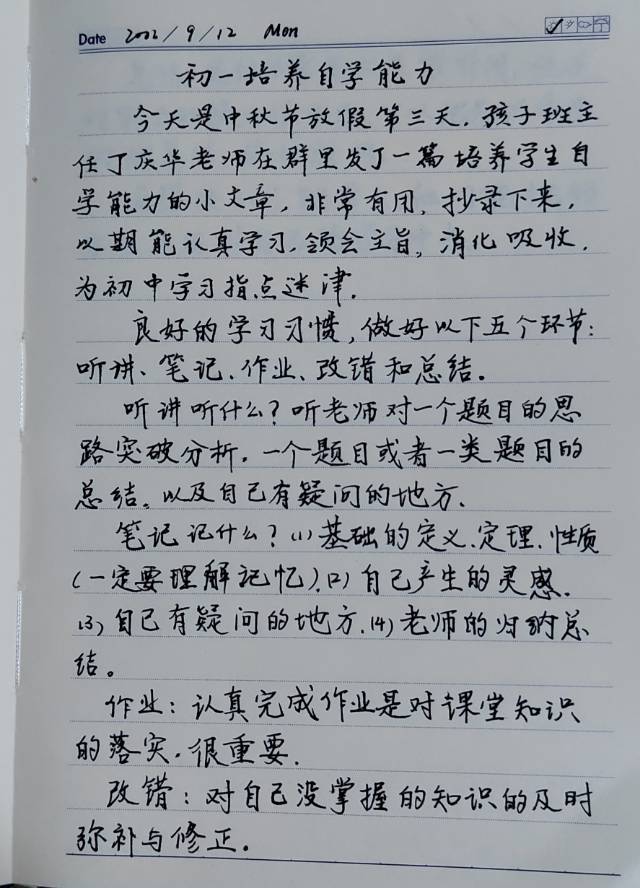 Date 2022/9/12 Mon
初一培养自学能力
今天是中秋节放假第三天,孩子班主
任丁庆华老师在群里发了一篇培养学生自
学能力的小文章,非常有用,抄录下来,
以期能认真学习,领会主旨,消化吸收,
为初中学习指点迷津.
良好的学习习惯,做好以下五个环节:
听讲、笔记、作业、改错和总结。
听讲听什么?听老师对一个题目的思
路突破分析,一个题目或者一类题目的
总结,以及自己有疑问的地方.
笔记记什么?(1)基础的定义、定理、性质
(一定要理解记忆)、(2)自己产生的灵感、
(3)自己有疑问的地方、(4)老师的归纳总
结。
作业:认真完成作业是对课堂知识
的落实,很重要.
改错:对自己没掌握的知识的及时
弥补与修正.